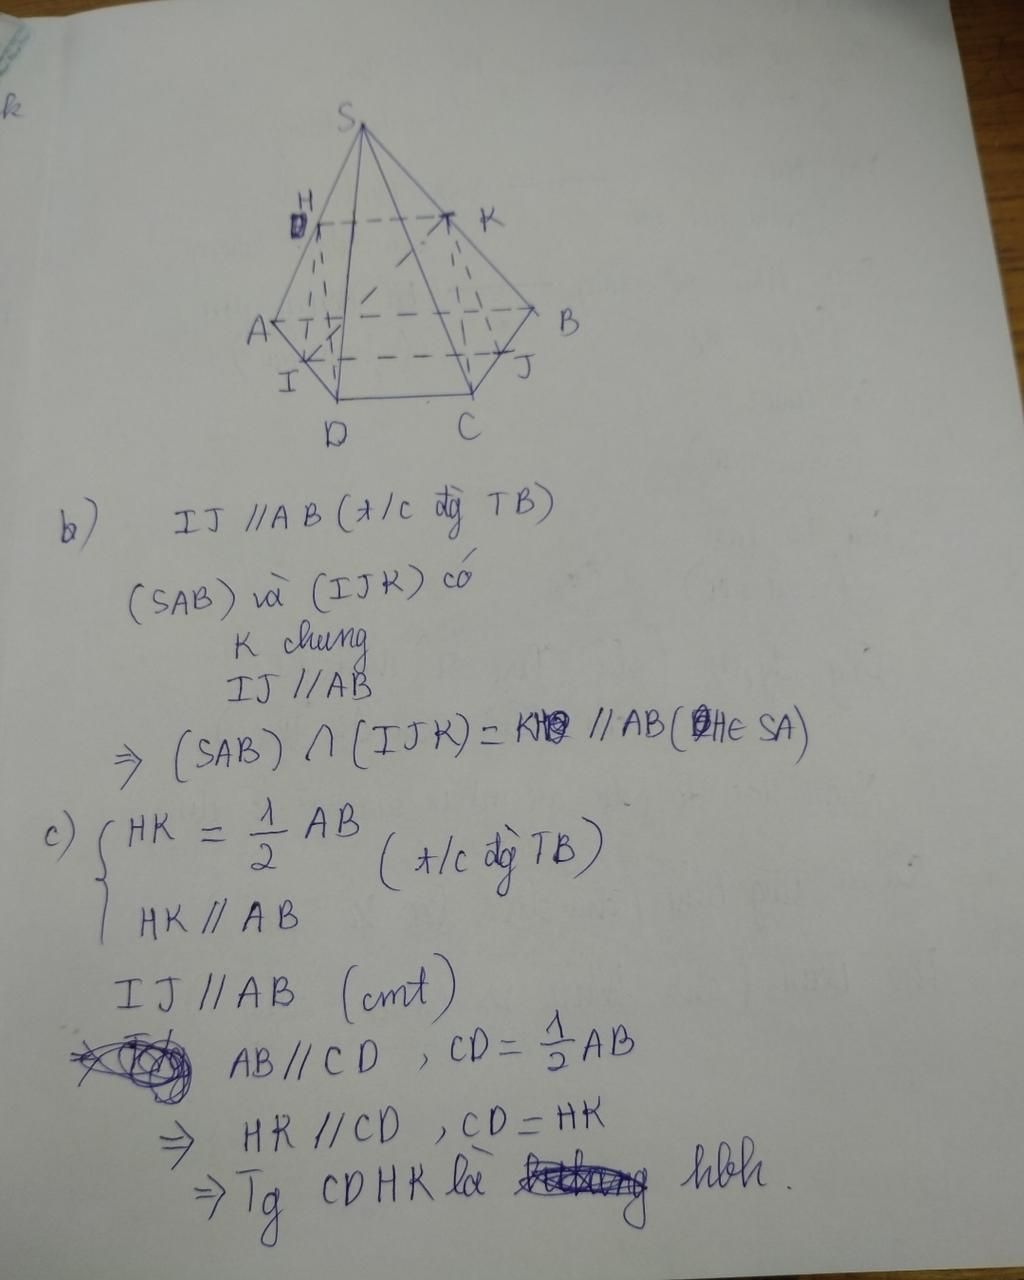 k
S
H
K
A
B
I
J
D
C
b) IJ // AB (t/c đg TB)
(SAB) và (IJK) có
K chung
IJ // AB
⇒ (SAB) ∩ (IJK) = KH // AB (H∈ SA)
c) { HK = 1/2 AB
(t/c đg TB)
HK // AB
IJ // AB (cmt)
AB // CD , CD = 1/2 AB
⇒ HK // CD , CD = HK
⇒ Tg CDHK là hbh.